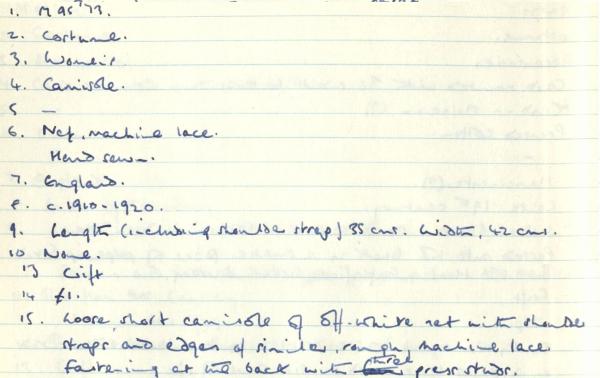 1. M 95'73.
2. Costume.
3. Women's
4. Camisole.
5 —
6. Net, machine lace.
Hand sewn.
7. England.
8. c.1910-1920.
9. Length (including shoulder strap) 35 cms. Width, 42 cms.
10 None.
13 Gift
14 £1.
15. Loose, short camisole of off-white net with shoulder
straps and edges of similar, rough, machine lace
fastening at the back with three press studs.